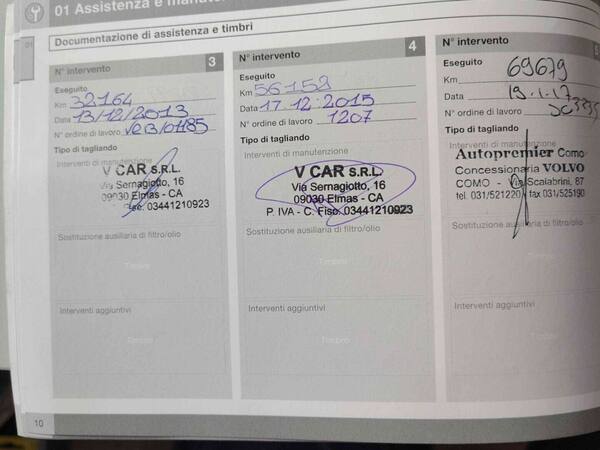 01 Assistenza e manuten
01
Documentazione di assistenza e timbri
3
N° intervento
Eseguito
Km 32164
Data 13/12/2013
N° ordine di lavoro
Tipo di tagliando
Interventi di manutenzione
V CAR S.R.L.
Via Sernagiotto, 16
09030 Elmas - CA
Fisc. 03441210923
Sostituzione ausiliaria di filtro/olio
Timbro
Interventi aggiuntivi
Timbro
4
N° intervento
Eseguito
Km 56158
Data 17.12.2015
N° ordine di lavoro 1207
Tipo di tagliando
Interventi di manutenzione
V CAR S.R.L.
Via Sernagiotto, 16
09030 Elmas - CA
P. IVA - C. Fisc. 03441210923
Sostituzione ausiliaria di filtro/olio
Timbro
Interventi aggiuntivi
Timbro
5
N° intervento
Eseguito
Km 69679
Data 19.1.17
N° ordine di lavoro
Tipo di tagliando
Interventi di manutenzione
Autopremier Como
Concessionaria VOLVO
COMO - Via Scalabrini, 87
tel. 031/521220 fax 031/525190
Sostituzione ausiliaria di filtro/olio
Timbro
Interventi aggiuntivi
Timbro
10